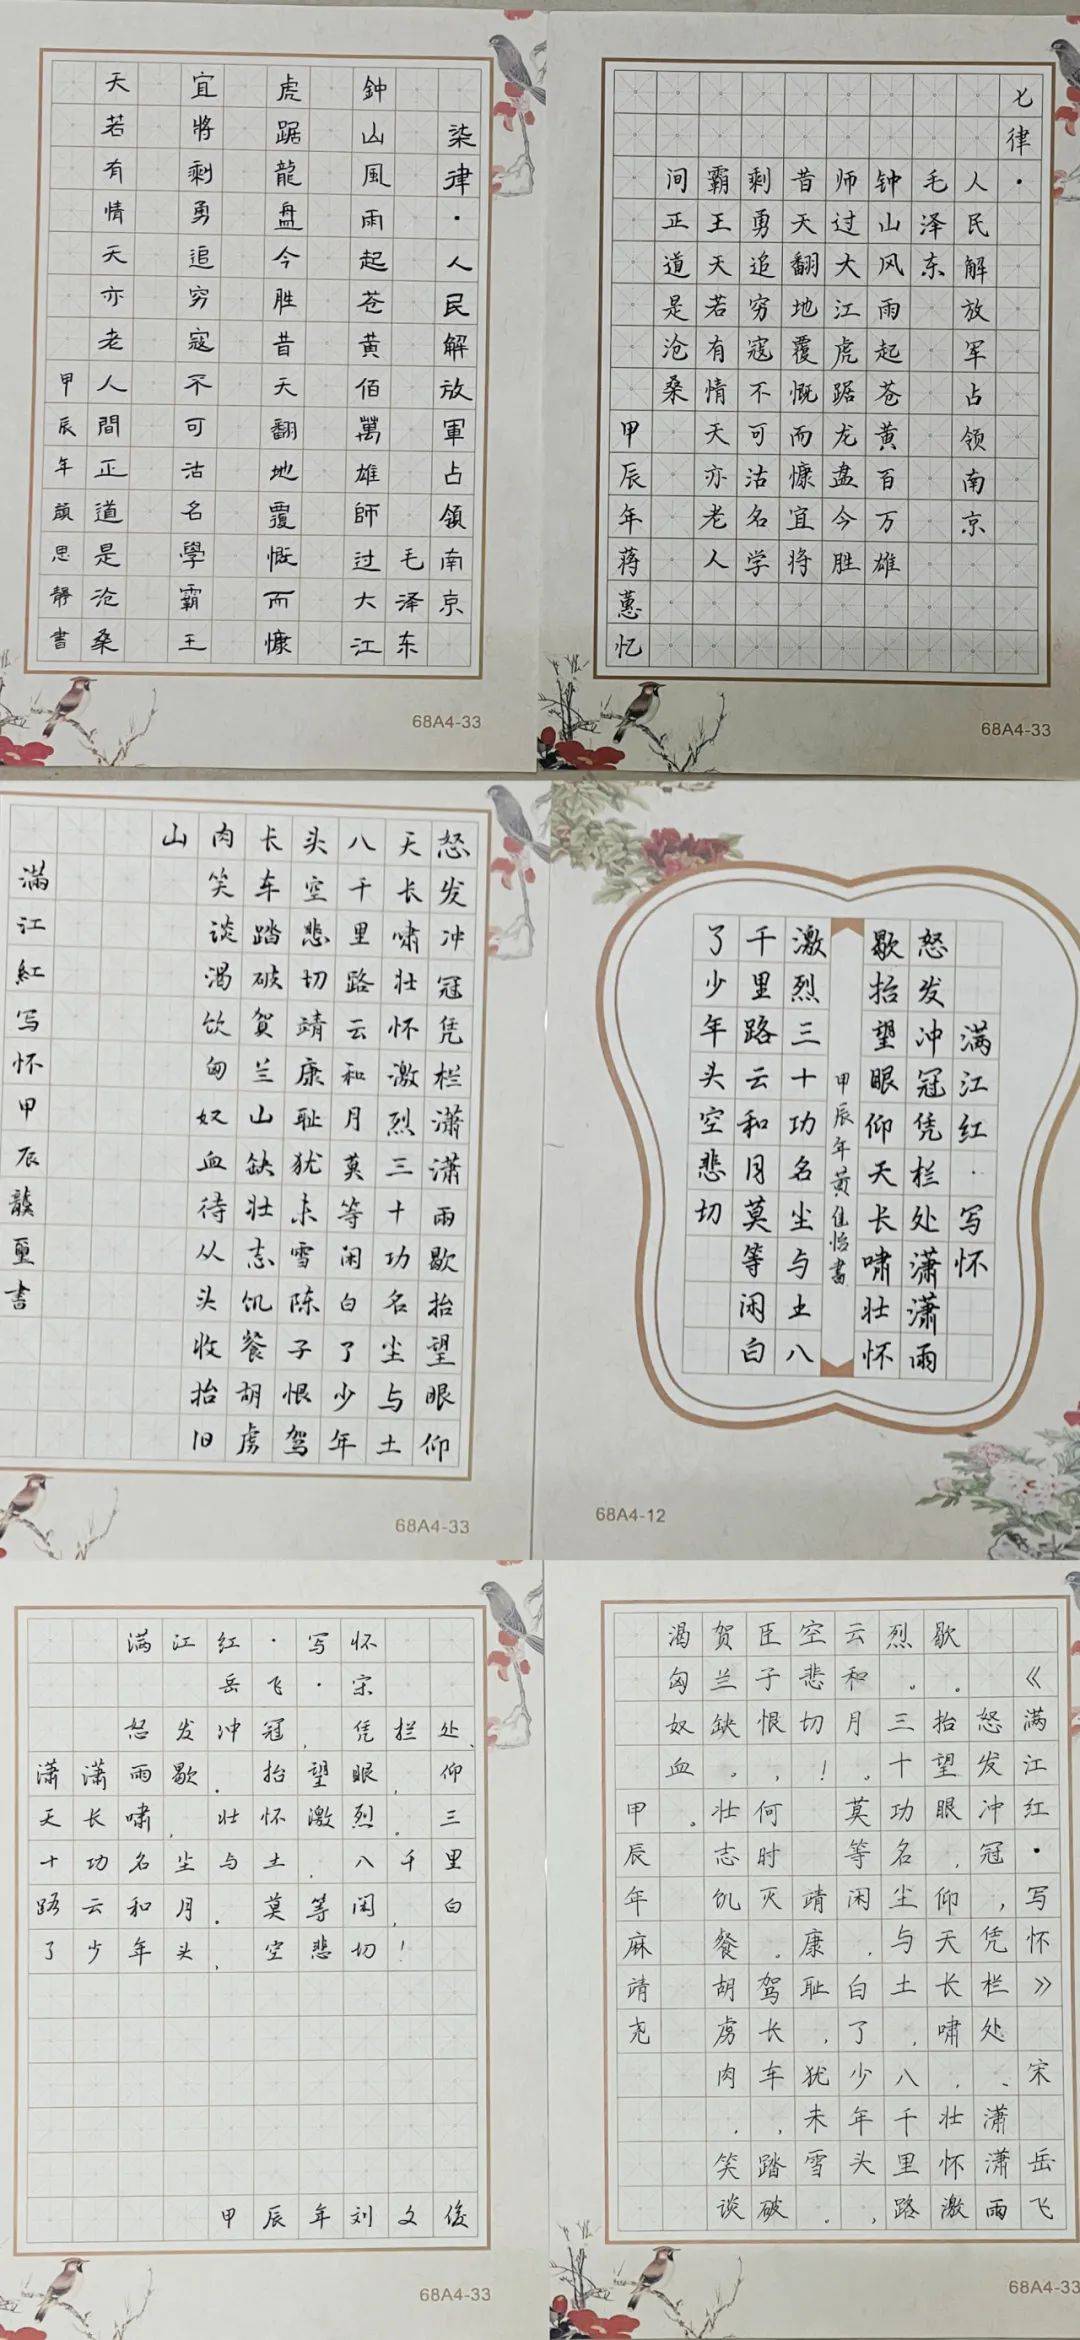 柒律·人民解放軍占領南京
毛泽东
鈡山風雨起苍黄佰萬雄師过大江
虎踞龍盘今胜昔天翻地覆慨而慷
宜將剩勇追穷寇不可沽名學霸王
天若有情天亦老人間正道是沧桑
甲辰年颜思静書
七律·
人民解放军占领南京
毛泽东
钟山风雨起苍黄百万雄
师过大江虎踞龙盘今胜
昔天翻地覆慨而慷宜将
剩勇追穷寇不可沽名学
霸王天若有情天亦老人
间正道是沧桑
甲辰年蒋蕙忆
68A4-33
68A4-33
怒发冲冠凭栏潇潇雨歇抬望眼仰
天长啸壮怀激烈三十功名尘与土
八千里路云和月莫等闲白了少年
头空悲切靖康耻犹未雪陈子恨驾
长车踏破贺兰山缺壮志饥餐胡虏
肉笑谈渴饮匈奴血待从头收抬旧
山
滿江紅写怀甲辰龚玺書
68A4-33
满江红·写怀
怒发冲冠凭栏处潇潇雨
歇抬望眼仰天长啸壮怀
甲辰年黄佳怡書
激烈三十功名尘与土八
千里路云和月莫等闲白
了少年头空悲切
68A4-12
满江红·写怀
岳飞·宋
怒发冲冠，凭拦处、
潇潇雨歇。抬望眼，仰
天长啸，壮怀激烈。三
十功名尘与土，八千里
路云和月。莫等闲，白
了少年头，空悲切！
甲辰年刘文俊
68A4-33
《满江红·写怀》宋岳飞
怒发冲冠，凭栏处、潇潇雨
歇。抬望眼，仰天长啸，壮怀激
烈。三十功名尘与土，八千里路
云和月。莫等闲，白了少年头，
空悲切！靖康耻，犹未雪。
臣子恨，何时灭。驾长车，踏破
贺兰缺。壮志饥餐胡虏肉，笑谈
渴匈奴血。
甲辰年麻靖尧
68A4-33